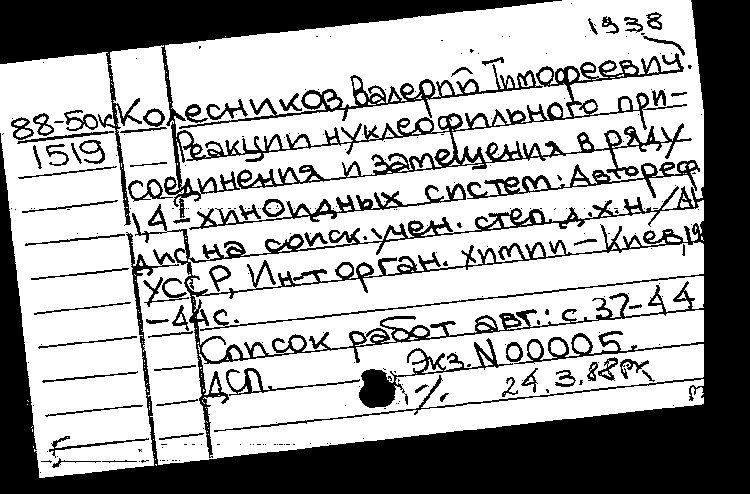 1938
88-50к Колесников, Валерий Тимофеевич.
1519 Реакции нуклеофильного при-
соединения и замещения в ряду
1,4-хиноидных систем: Автореф
дис. на соиск. учен. степ. д.х.н. / АН
УССР, Ин-т орган. химии. – Киев,
– 44 с.
Список работ авт.: с. 37-44.
ДСП. Экз. N 00005.
24.3.88